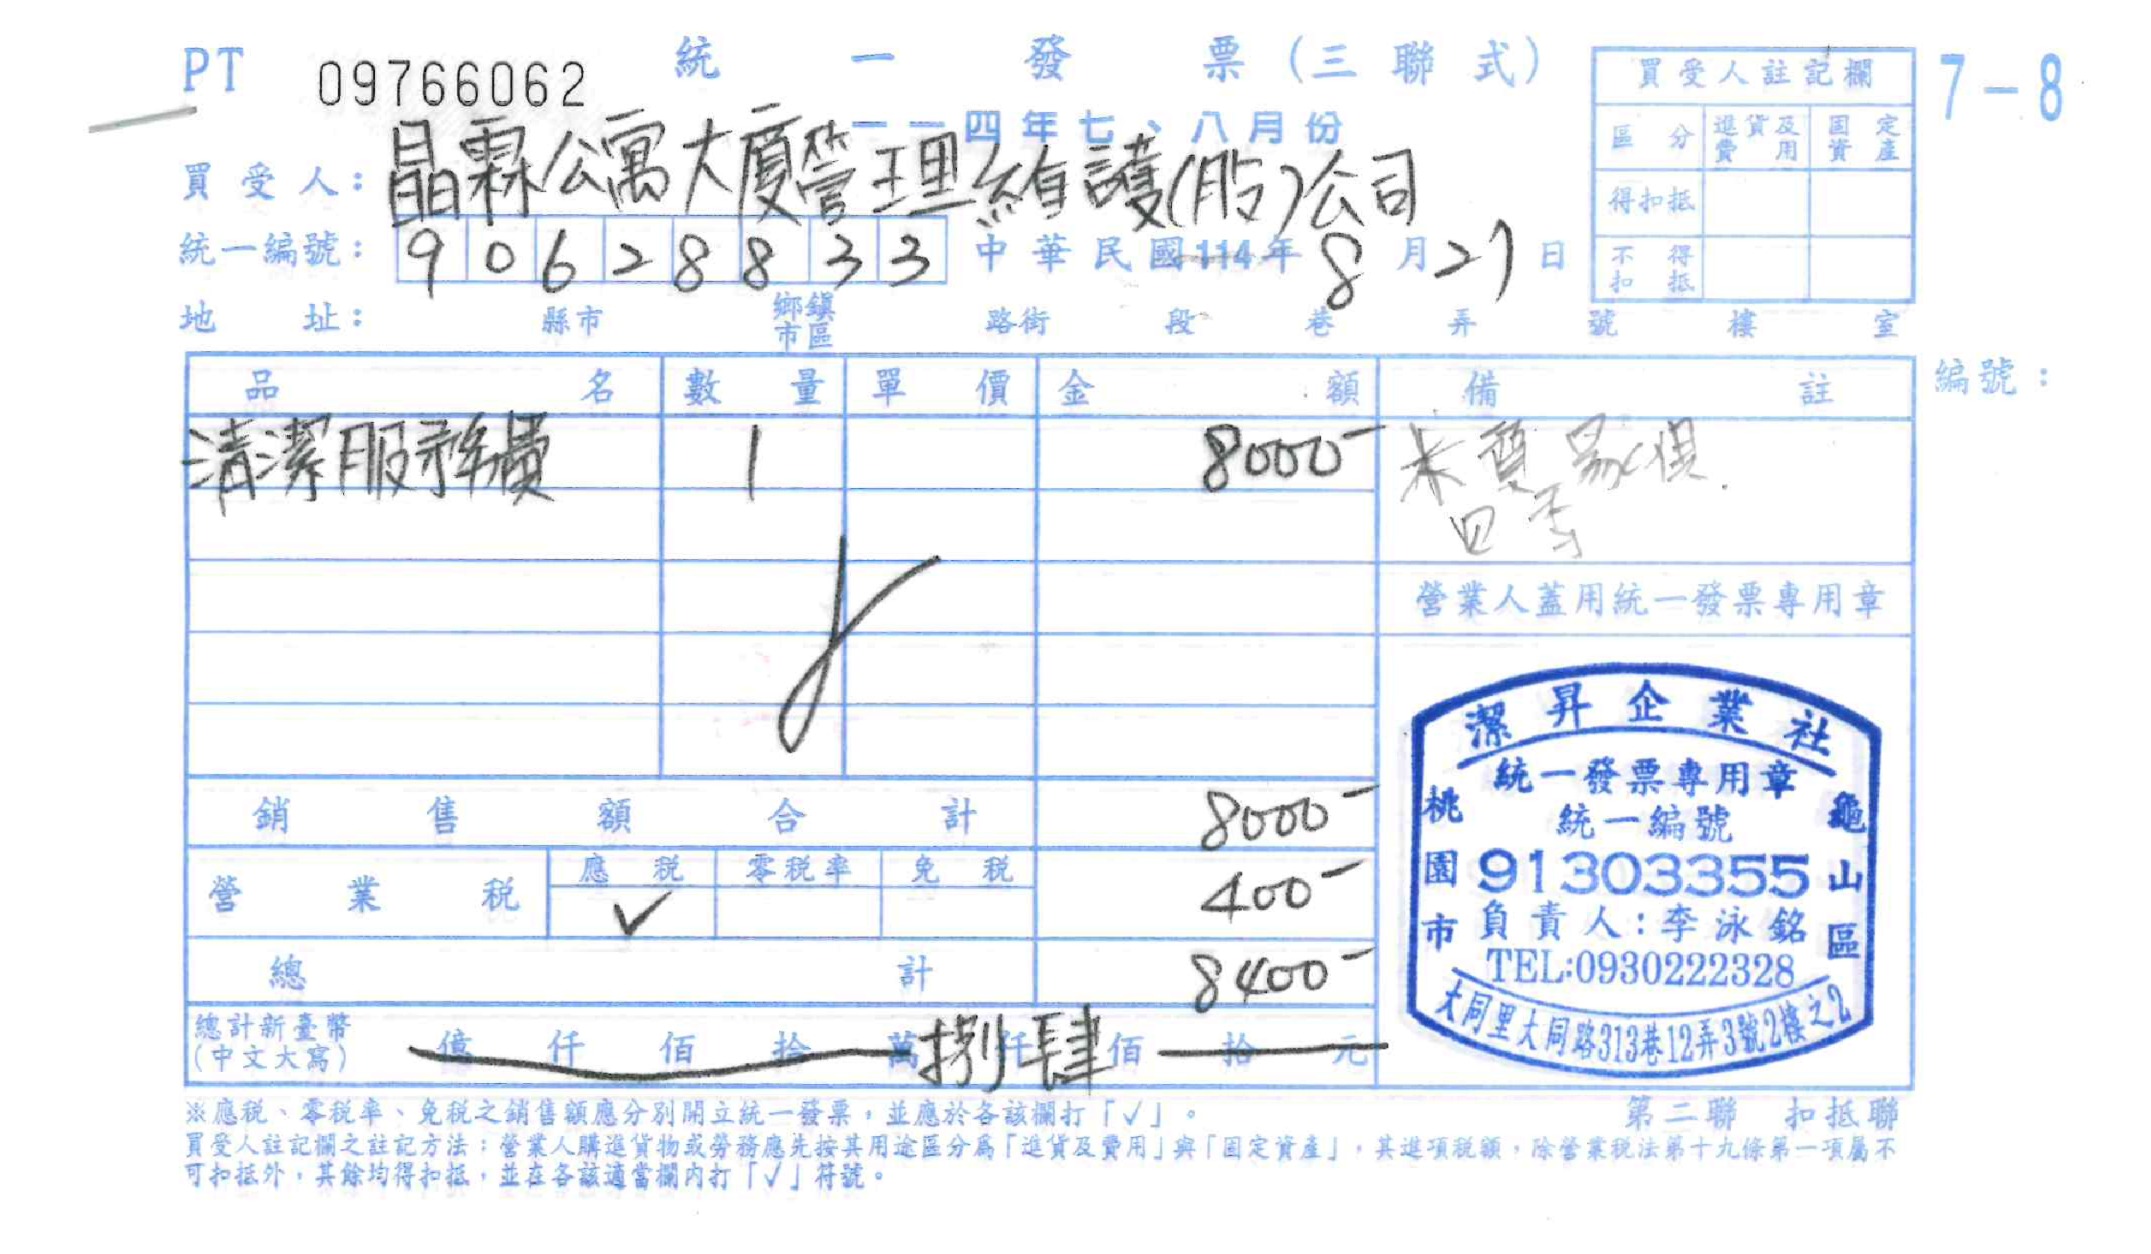 PT 09766062 統一發票(三聯式) 7-8
一一四年七、八月份
買受人註記欄
區分 進貨及費用 固定資產
得扣抵
不得扣抵
買受人:晶霖公寓大廈管理維護(股)公司
統一編號:90628833 中華民國114年8月27日
地址: 縣市 鄉鎮市區 路街 段 巷 弄 號 樓 室
品名 數量 單價 金額 備註 編號:
清潔服務費 1 8000-
營業人蓋用統一發票專用章
銷售額合計 8000-
營業稅 應稅 零稅率 免稅 400-
✓
總計 8400-
總計新臺幣(中文大寫) 億 仟 佰 拾 萬捌仟肆佰 拾 元
潔昇企業社
統一發票專用章
統一編號
91303355
負責人:李泳銘
TEL:0930222328
桃園市
龜山區
大同里大同路313巷12弄3號2樓之2
※應稅、零稅率、免稅之銷售額應分別開立統一發票,並應於各該欄打「✓」。 第二聯 扣抵聯
買受人註記欄之註記方法:營業人購進貨物或勞務應先按其用途區分為「進貨及費用」與「固定資產」,其進項稅額,除營業稅法第十九條第一項屬不
可扣抵外,其餘均得扣抵,並在各該適當欄內打「✓」符號。